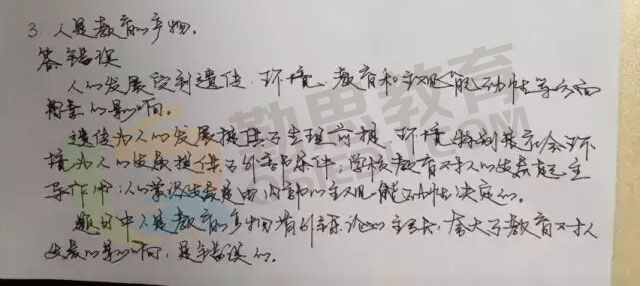 3. 人是教育的产物.
答：错误
人的发展受到遗传、环境、教育和主观能动性等方面
因素的影响.
遗传为人的发展提供了生理前提，环境特别是社会环
境为人的发展提供了外部条件，学校教育对人的发展起主
导作用；人的发展是由内部的主观能动性决定的.
题目中人是教育的产物是外铄论的主张，夸大了教育对人
发展的影响，是错误的.
勤思教育